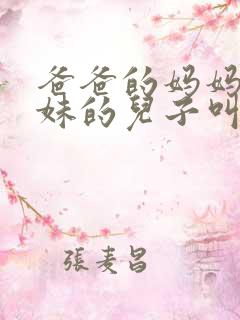 爸爸的妈妈
妹的兒子叫
張麦昌